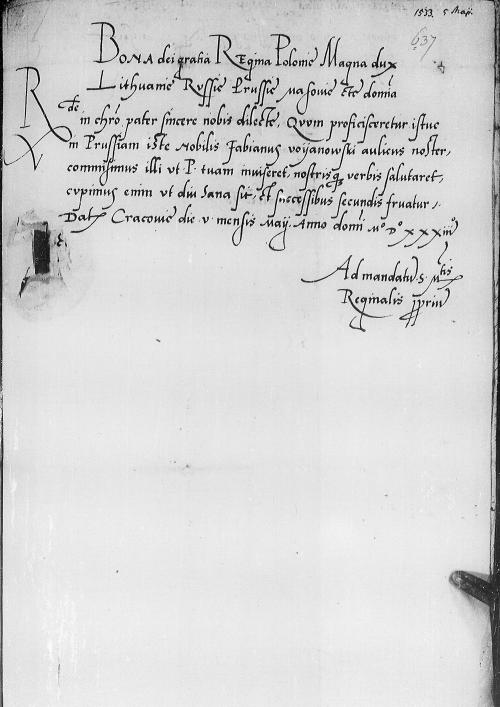 1533. 5 Maji.
637
BONA dei gratia Regina Polonie Magna dux
Lithuanie Russie Prussie Masovie etc domina
Rde in chro pater sincere nobis dilecte. Quom proficisceretur istuc
in Prussiam iste Nobilis Fabianus voijanowski aulicus noster,
commisimus illi ut P. tuam inviseret, nostrisq verbis salutaret,
cupimus enim ut diu sana sit, et successibus secundis fruatur.
Dat Cracovie die v mensis Maij. Anno domi Mo Do xxxiiio
Ad mandatu S. Mtis
Reginalis ppriu